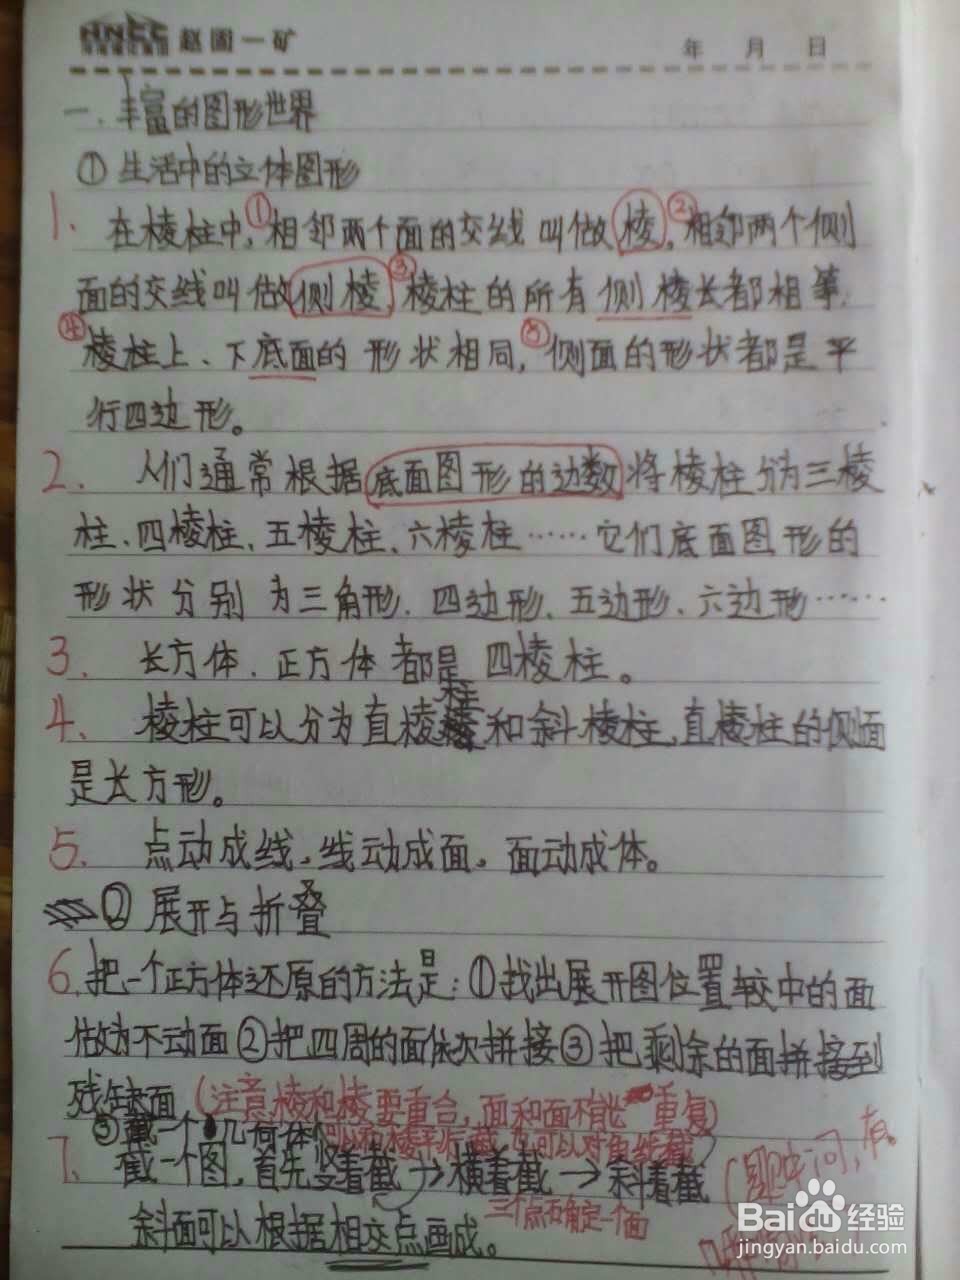 HNCC 赵固一矿 年 月 日
一.丰富的图形世界
①生活中的立体图形
1. 在棱柱中,①相邻两个面的交线叫做棱,②相邻两个侧
面的交线叫做侧棱,③棱柱的所有侧棱长都相等,
④棱柱上、下底面的形状相同,⑤侧面的形状都是平
行四边形。
2. 人们通常根据底面图形的边数将棱柱分为三棱
柱、四棱柱、五棱柱、六棱柱……它们底面图形的
形状分别为三角形、四边形、五边形、六边形……
3. 长方体、正方体都是四棱柱。
4. 棱柱可以分为直棱柱和斜棱柱,直棱柱的侧面
是长方形。
5. 点动成线,线动成面,面动成体。
②展开与折叠
6.把一个正方体还原的方法是:①找出展开图位置较中的面
做为不动面②把四周的面依次拼接③把剩余的面拼接到
残缺面(注意棱和棱要重合,面和面不能重复)
③截一个几何体
可以对角线截
7. 截一个图,首先竖着截→横着截→斜着截
三个点确定一个面
斜面可以根据相交点画成。
Baidu经验
jingyan.baidu.com